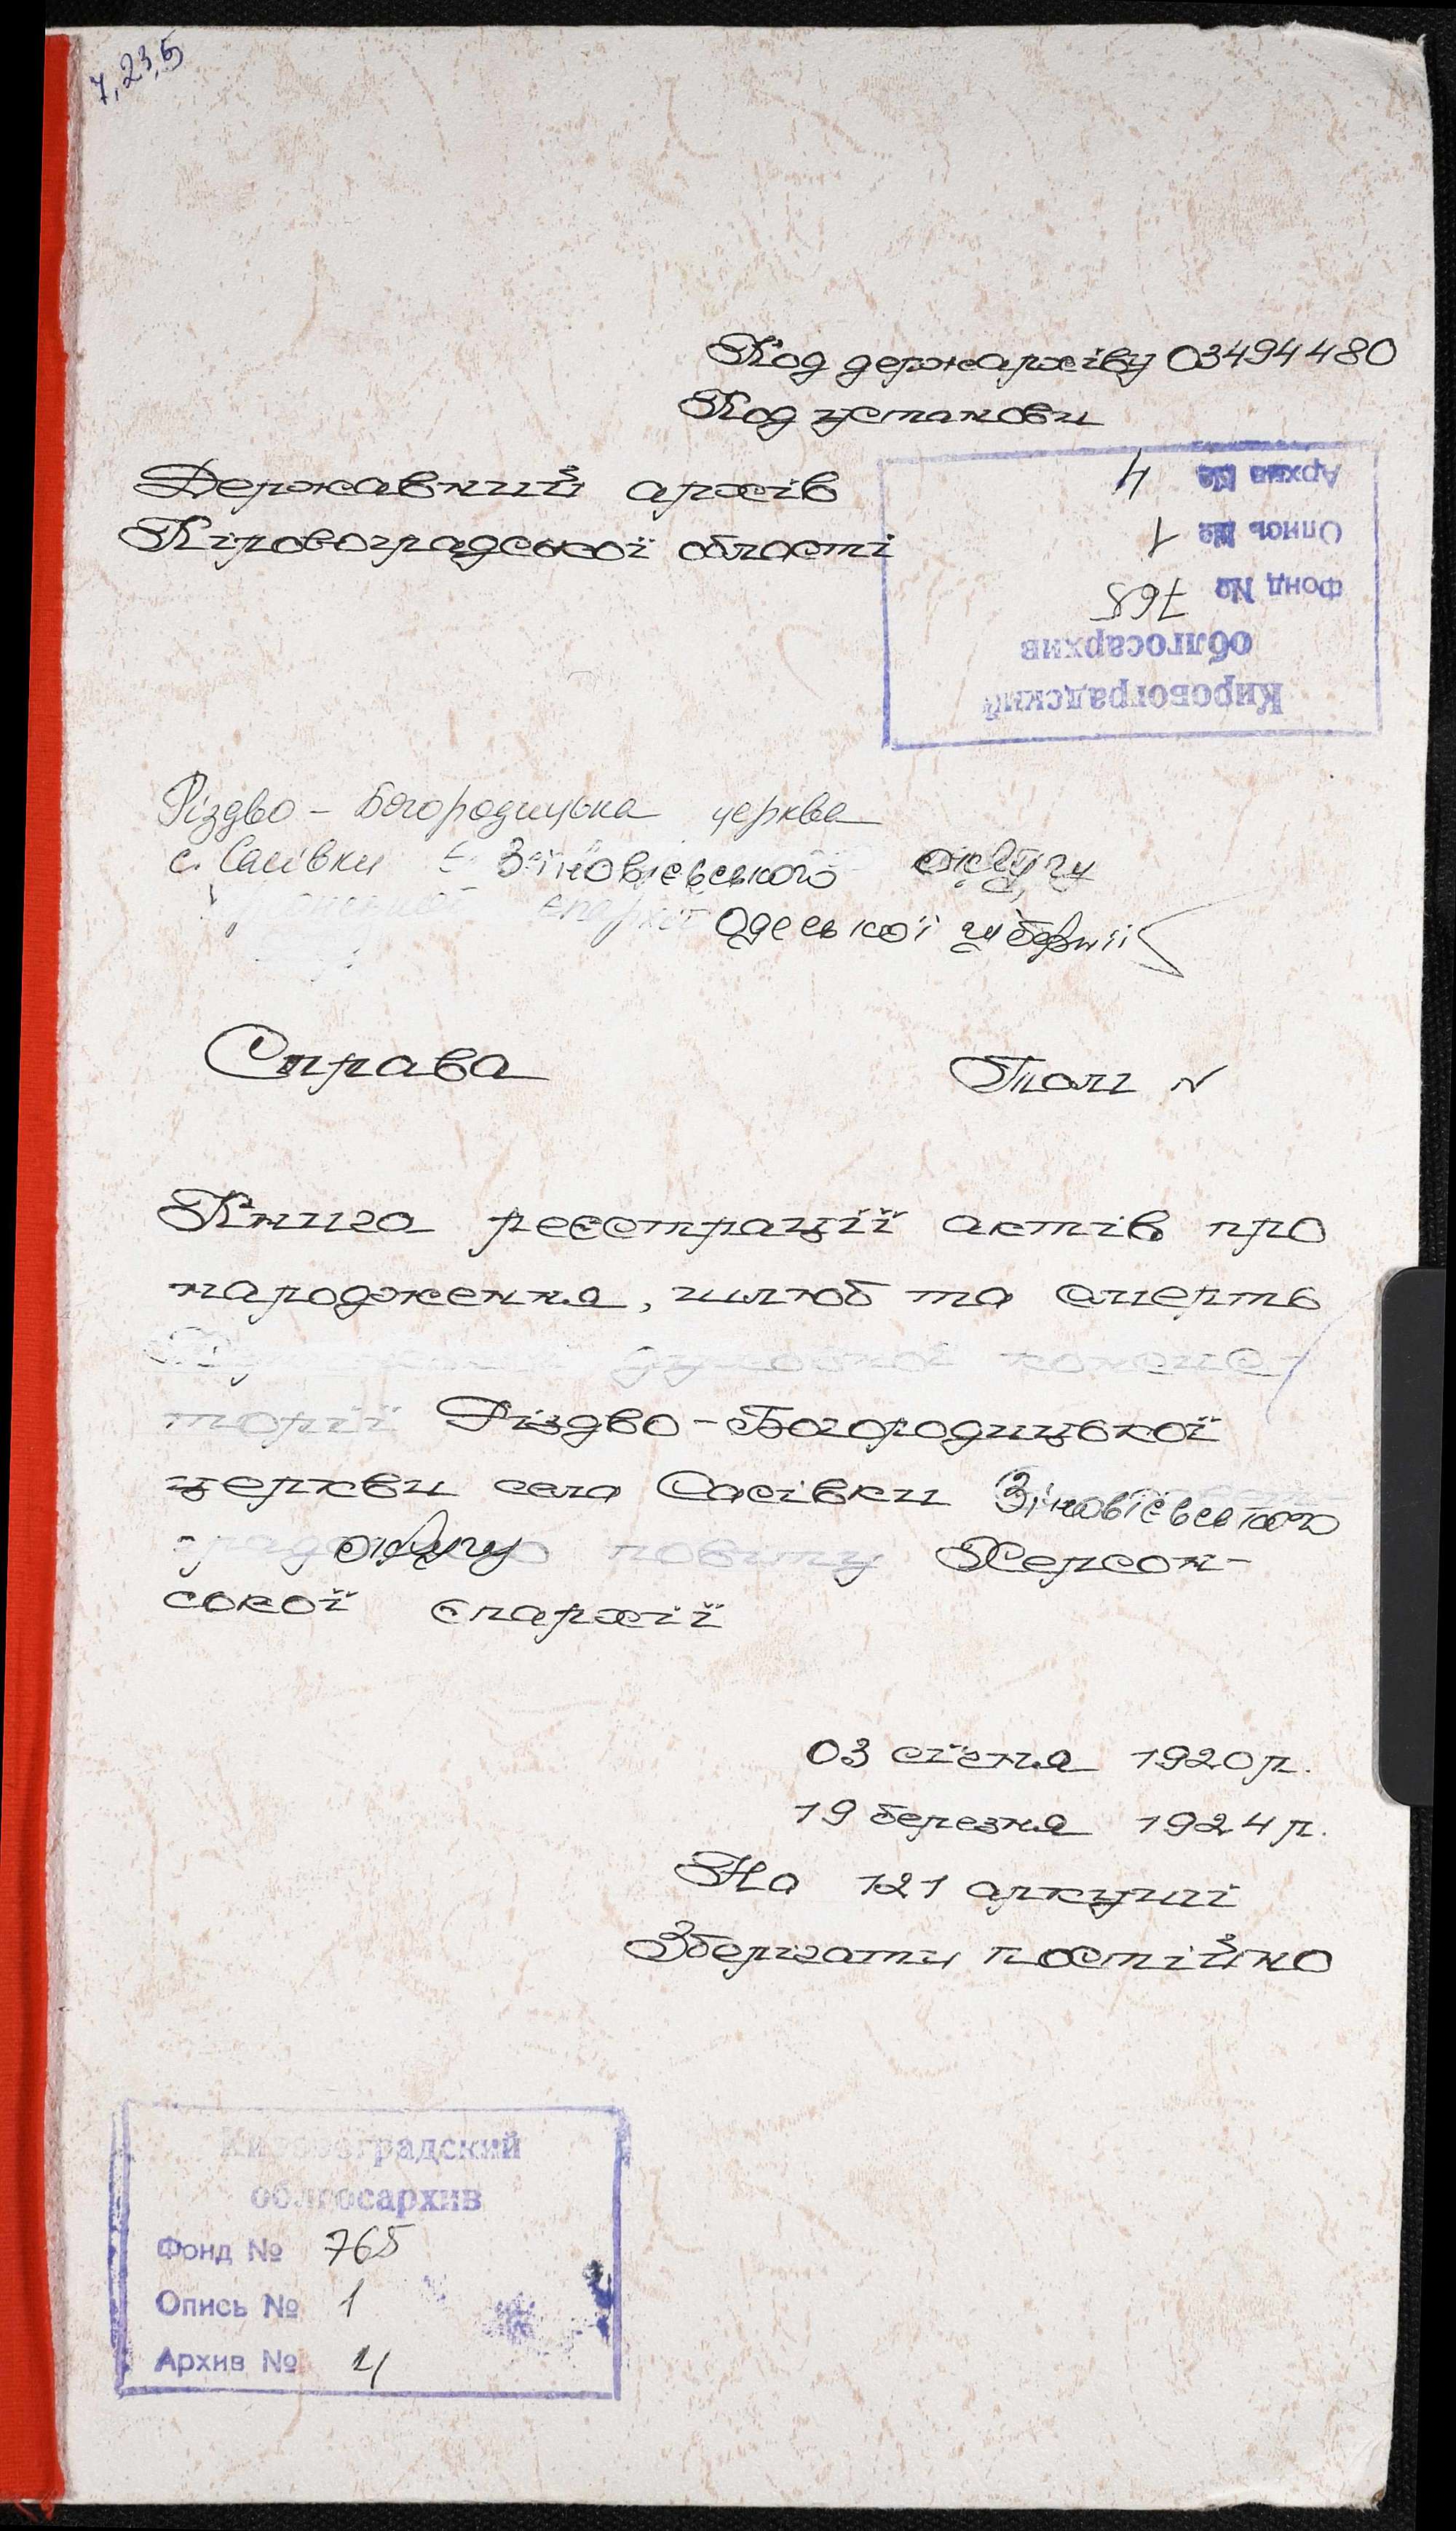 7,23,5
Код держархіву 03494480
Код установи
Державний архів
Кіровоградської області
Кировоградский
облгосархив
Фонд № 765
Опись № 1
Архив № 4
Різдво-Богородицька церква
с. Сасівки Зінов'євського округу
єпархії Одеської губернії
Справа
Том N
Книга реєстрації актів про
народження, шлюб та смерть
духовної консис-
торії Різдво-Богородицької
церкви села Сасівки Зінов'євського
округу повіту Херсон-
ської єпархії
03 січня 1920 р.
19 березня 1924 р.
На 121 аркуші
Зберігати постійно
Кировоградский
облгосархив
Фонд № 765
Опись № 1
Архив № 4